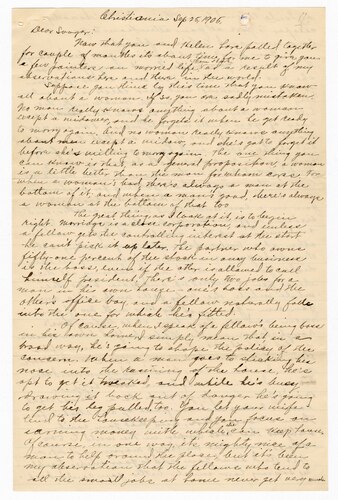 Christiania Sep 25, 1905.
Dear Sawyer:
Now that you and Helen have pulled together
for couple of months its about time for me to give you
a few pointers on married life, as the result of my
observations here and there in the world.
Suppose you think by this time that you know
all about a woman. If so you are sadly mistaken.
No man really knows anything about a woman
except a widower, and he forgets it when he get ready
to marry again. And no woman really knows anything
about man except a widow, and she's got to forget it
before she's willing to marry again. The one thing you
can know is that, as a general proposition, a woman
is a little better than the man for whom cares. For
when a woman's bad, there's always a man at the
bottom of it; and when a man's good, there's always
a woman at the bottom of that too.
The great thing as I look at it, is to begin
right. Marriage is a close corporation, and unless
a fellow gets the controlling interest at the start
he can't pick it up later. The partner who owns
fifty-one percent of the stock in any business
is the boss, even if the other is allowed to call
himself president. There's only two jobs for a
man in his own house, one's boss and the
other's office boy, and a fellow naturally falls
into the one for which he's fitted.
Of course, when I speak of a fellow's being boss
in his own home, I simply mean that in a
broad way, he's going to shape the policy of the
concern. When a man goes to sticking his
nose into the running of the house, he's
apt to get it tweaked, and while he's busy
drawing it back out of danger he's going
to get his leg pulled, too. You let your wife
tend to the housekeeping and you focus on
earning money with which she can keep house.
Of course, in one way, it's mighty nice of a
man to help around the place, but it's been
my observation that the fellows who tend to
all the small jobs at home never get very much